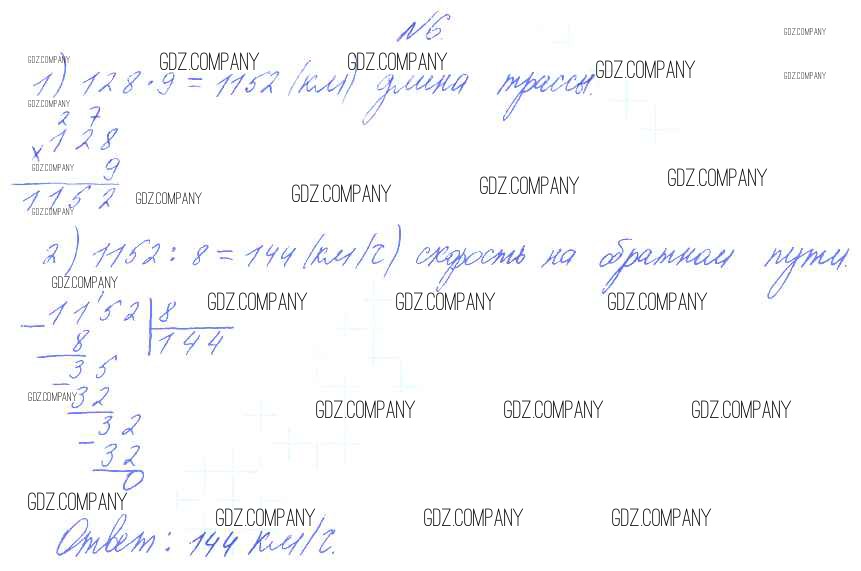 №6.
GDZ.COMPANY
GDZ.COMPANY GDZ.COMPANY GDZ.COMPANY GDZ.COMPANY GDZ.COMPANY
1) 128·9 = 1152 (км) длина трассы.
GDZ.COMPANY
2 7
× 128
GDZ.COMPANY 9
1152 GDZ.COMPANY GDZ.COMPANY GDZ.COMPANY GDZ.COMPANY
GDZ.COMPANY
2) 1152 : 8 = 144 (км/ч) скорость на обратном пути.
GDZ.COMPANY
GDZ.COMPANY GDZ.COMPANY GDZ.COMPANY
1152 | 8
8 144
35
GDZ.COMPANY 32
GDZ.COMPANY GDZ.COMPANY GDZ.COMPANY
32
32
0
GDZ.COMPANY
GDZ.COMPANY GDZ.COMPANY GDZ.COMPANY
Ответ: 144 км/ч.